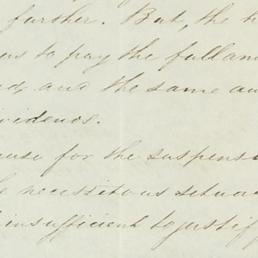 further. But, the
to pay the full am
and the same au
vidence.
cause for the suspens
necessitous situa
insufficient to justif